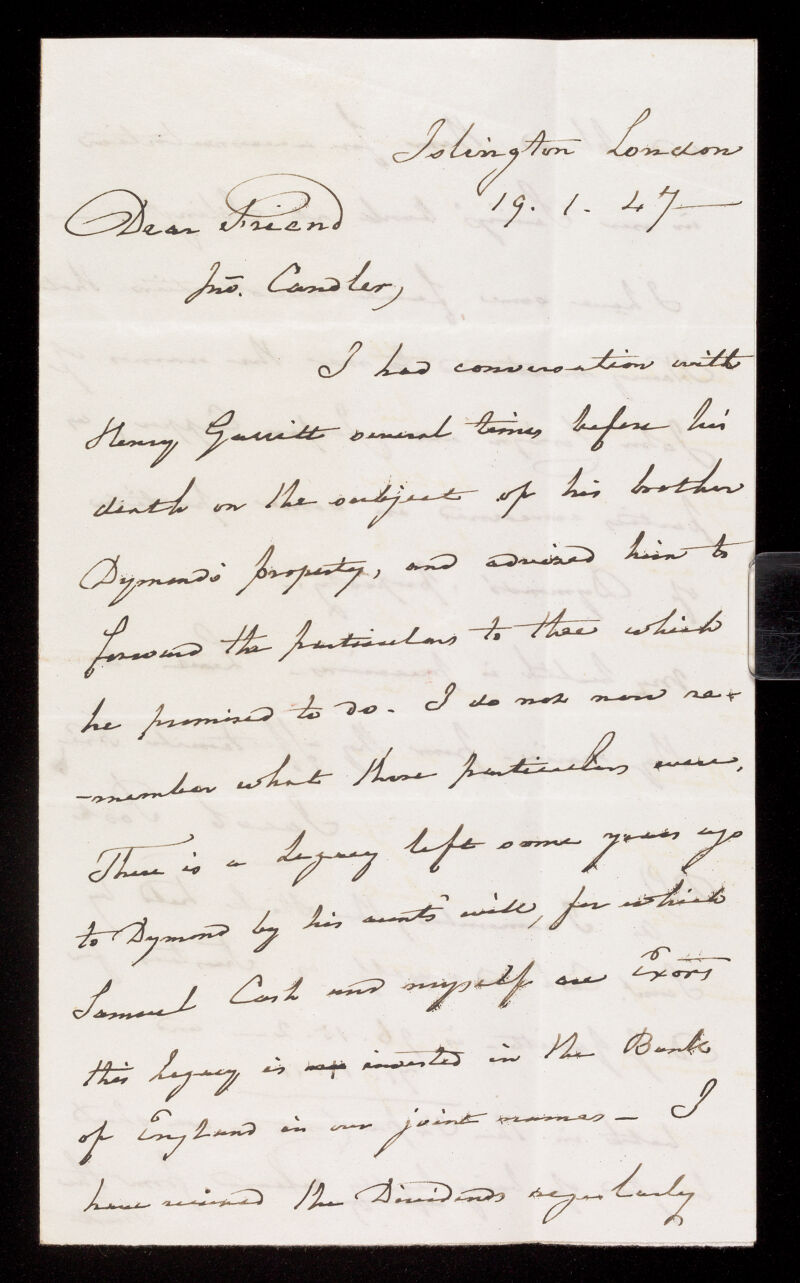 Islington London
19. 1. 47
Dear Friend
Jno. Candler,
I had conversation with
Henry several times before his
death on the subject of his brother
Dymond's property, and advised him to
forward the particulars to thee which
he promised to do. I do not now re-
-member what those particulars were.
There is a legacy left some years ago
to Dymond by his aunt's will, for which
Samuel Cash and myself are Exors
this legacy is invested in the Bank
of England in our joint names - I
have received the Dividends regularly